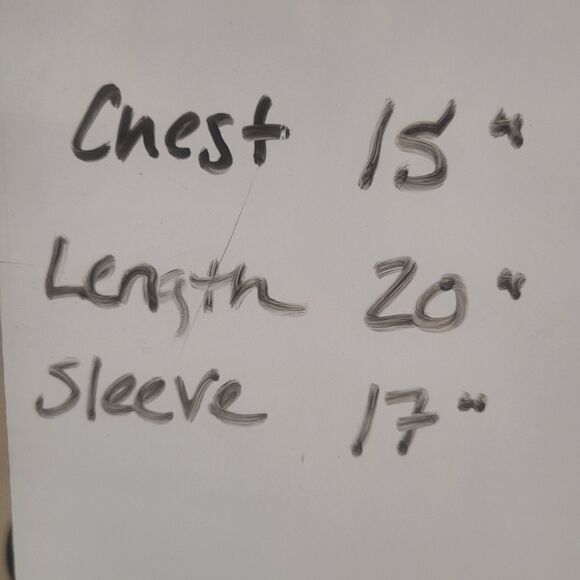 Chest 15"
Length 20"
Sleeve 17"